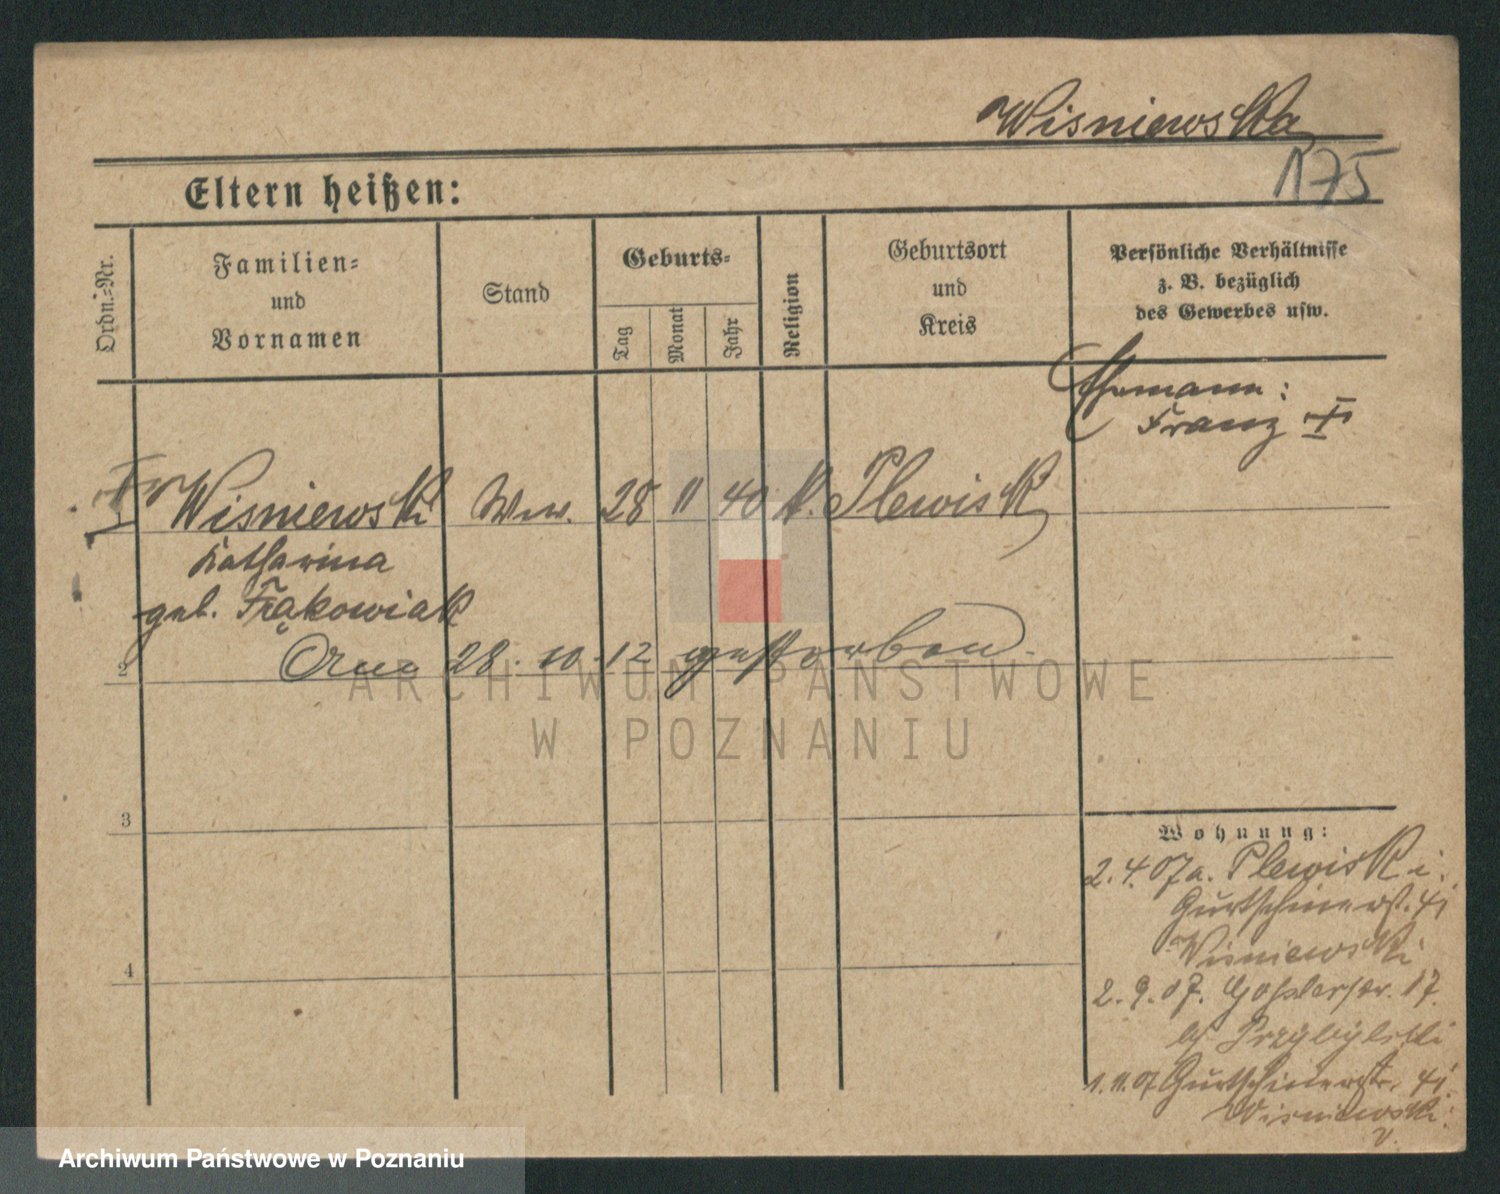 Wisniewska
175
Eltern heißen:
Ordn.-Nr.
Familien-
und
Vornamen
Stand
Geburts-
Tag
Monat
Jahr
Religion
Geburtsort
und
Kreis
Persönliche Verhältnisse
z. B. bezüglich
des Gewerbes usw.
Ehemann:
Franz †
Wisniewski Ww. 28 11 40 k. Plewisk
Katharina
geb. Frąkowiak
2
28. 10. 12 gestorben.
3
4
Wohnung:
2. 4. 07 a. Plewisk i.
Gurtschinerstr. 41
Wisniewski
2. 9. 07. Goßlerstr. 17.
bei Przybylski
1. 11. 07 Gurtschinerstr. 41
Wisniewski
ARCHIWUM PAŃSTWOWE
W POZNANIU
Archiwum Państwowe w Poznaniu